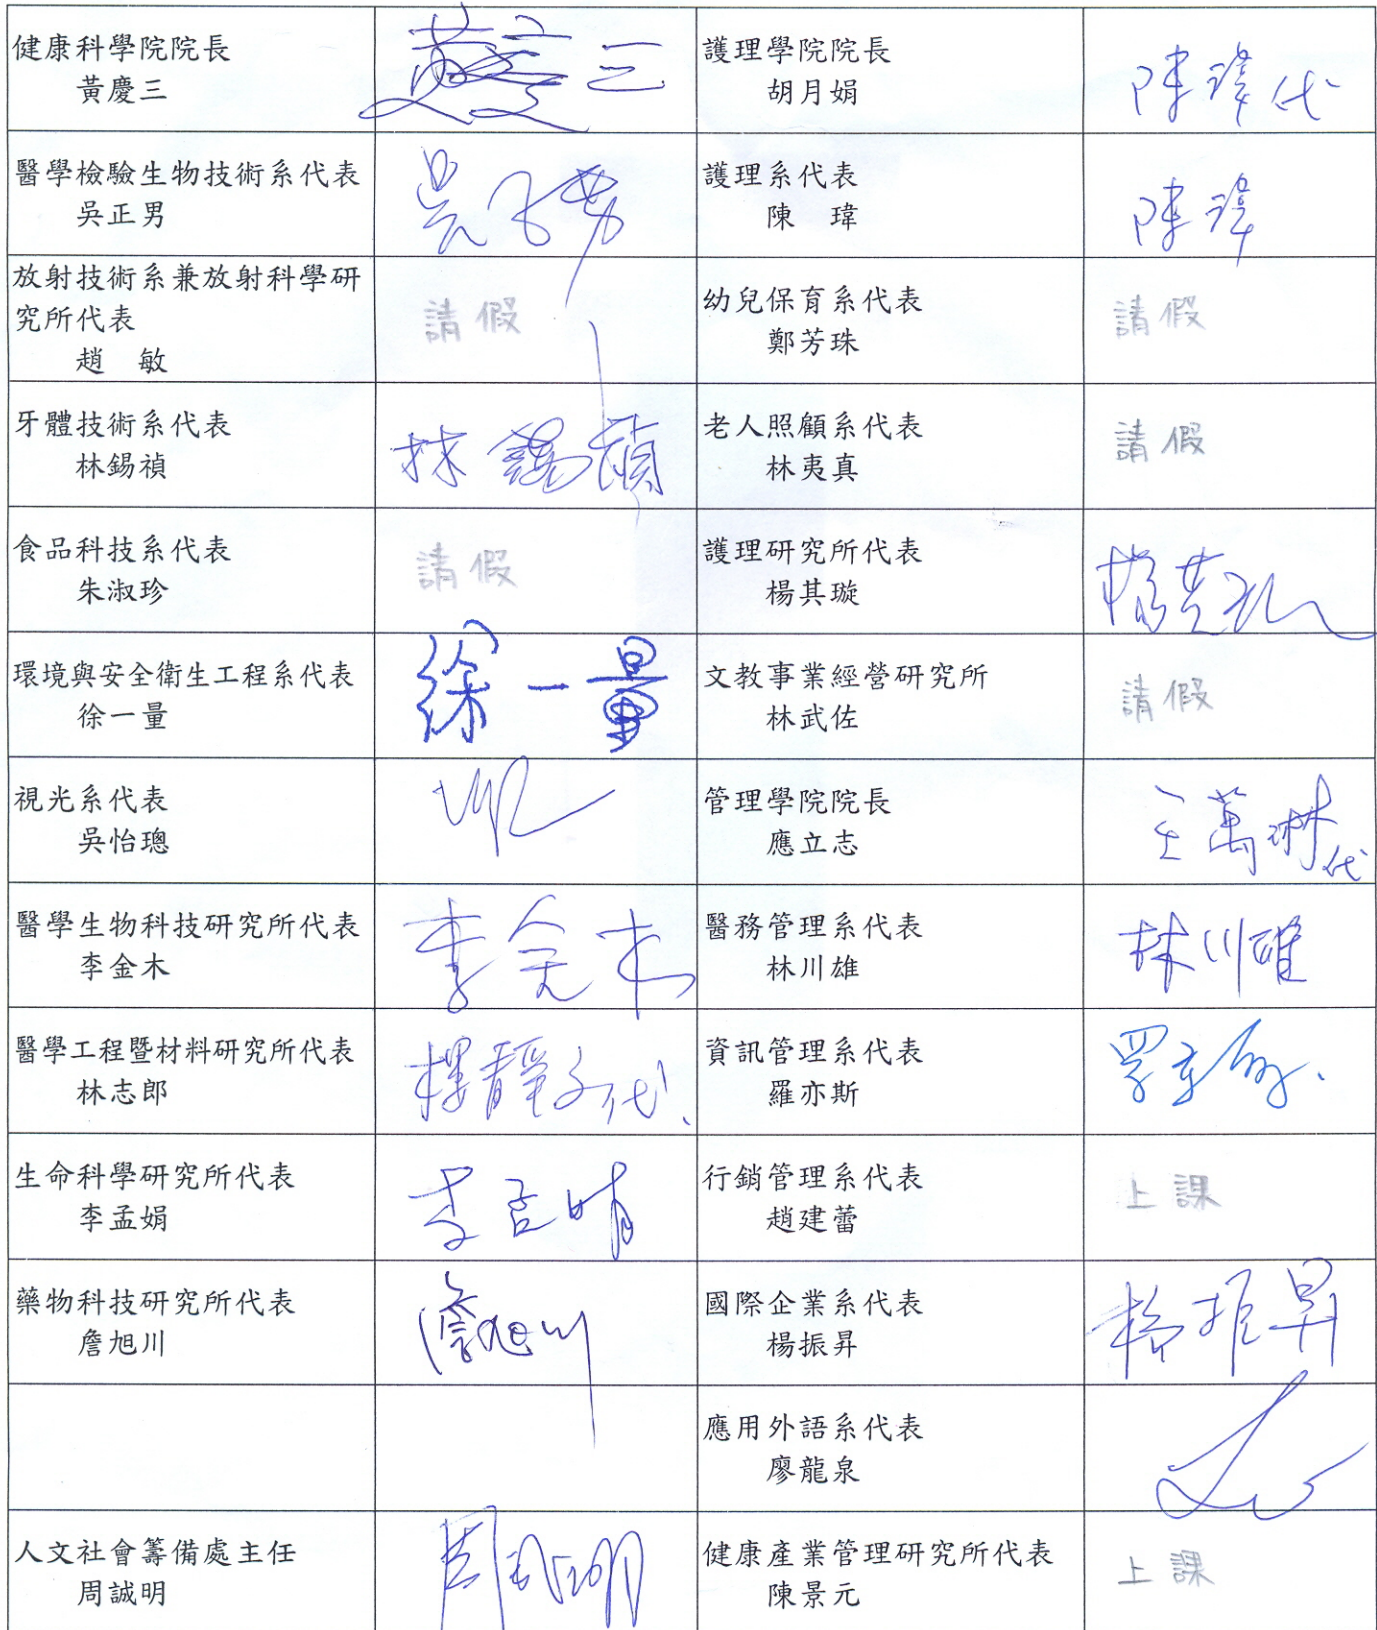 健康科學院院長
黃慶三
黃慶三
護理學院院長
胡月娟
陳瑋代
醫學檢驗生物技術系代表
吳正男
護理系代表
陳 瑋
陳瑋
放射技術系兼放射科學研
究所代表
趙 敏
請假
幼兒保育系代表
鄭芳珠
請假
牙體技術系代表
林錫禎
林錫禎
老人照顧系代表
林夷真
請假
食品科技系代表
朱淑珍
請假
護理研究所代表
楊其璇
環境與安全衛生工程系代表
徐一量
徐一量
文教事業經營研究所
林武佐
請假
視光系代表
吳怡璁
管理學院院長
應立志
王萬琳代
醫學生物科技研究所代表
李金木
李金木
醫務管理系代表
林川雄
林川雄
醫學工程暨材料研究所代表
林志郎
資訊管理系代表
羅亦斯
生命科學研究所代表
李孟娟
行銷管理系代表
趙建蕾
上課
藥物科技研究所代表
詹旭川
詹旭川
國際企業系代表
楊振昇
楊振昇
應用外語系代表
廖龍泉
人文社會籌備處主任
周誠明
健康產業管理研究所代表
陳景元
上課